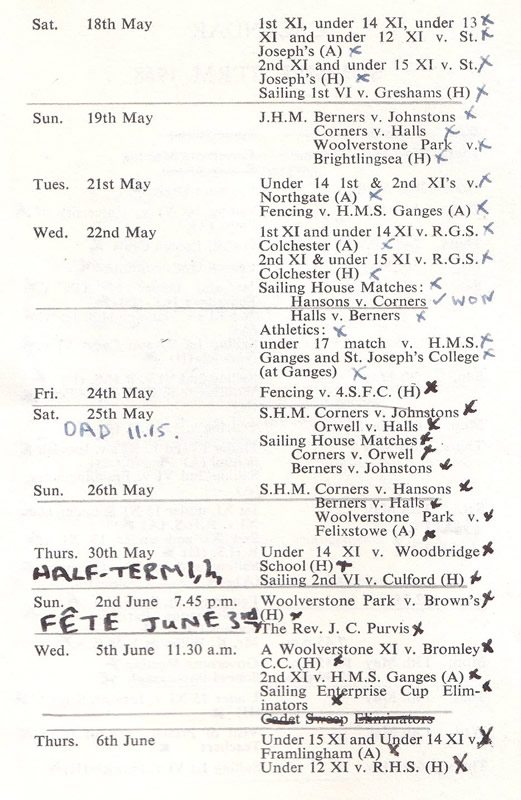 Sat. 18th May 1st XI, under 14 XI, under 13
XI and under 12 XI v. St.
Joseph's (A)
2nd XI and under 15 XI v. St.
Joseph's (H)
Sailing 1st VI v. Greshams (H)
Sun. 19th May J.H.M. Berners v. Johnstons
Corners v. Halls
Woolverstone Park v.
Brightlingsea (H)
Tues. 21st May Under 14 1st & 2nd XI's v.
Northgate (A)
Fencing v. H.M.S. Ganges (A)
Wed. 22nd May 1st XI and under 14 XI v. R.G.S.
Colchester (A)
2nd XI & under 15 XI v. R.G.S.
Colchester (H)
Sailing House Matches:
Hansons v. Corners ✓ WON
Halls v. Berners
Athletics:
under 17 match v. H.M.S.
Ganges and St. Joseph's College
(at Ganges)
Fri. 24th May Fencing v. 4.S.F.C. (H)
Sat. 25th May S.H.M. Corners v. Johnstons
DAD 11.15. Orwell v. Halls
Sailing House Matches
Corners v. Orwell
Berners v. Johnstons
Sun. 26th May S.H.M. Corners v. Hansons
Berners v. Halls
Woolverstone Park v.
Felixstowe (A)
Thurs. 30th May Under 14 XI v. Woodbridge
HALF-TERM School (H)
Sailing 2nd VI v. Culford (H)
Sun. 2nd June 7.45 p.m. Woolverstone Park v. Brown's
(H)
FÊTE JUNE 3rd The Rev. J. C. Purvis
Wed. 5th June 11.30 a.m. A Woolverstone XI v. Bromley
C.C. (H)
2nd XI v. H.M.S. Ganges (A)
Sailing Enterprise Cup Elim-
inators
Cadet Sweep Eliminators
Thurs. 6th June Under 15 XI and Under 14 XI v.
Framlingham (A)
Under 12 XI v. R.H.S. (H)